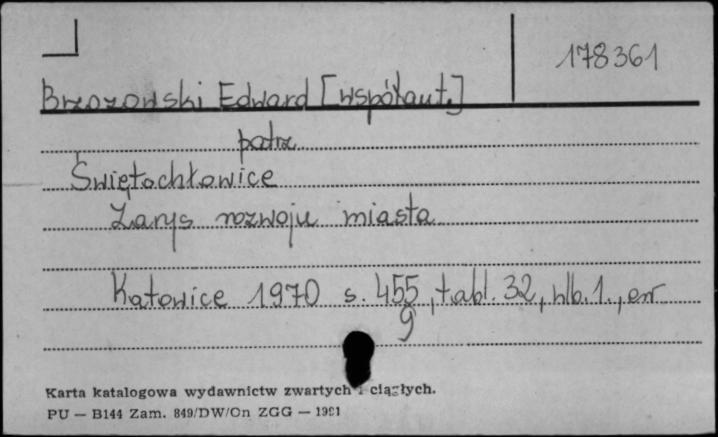 178361
Brzozowski Edward [współaut.]
patrz
Świętochłowice
Zarys rozwoju miasta
Katowice 1970 s. 455, tabl. 32, nlb. 1., err
9
Karta katalogowa wydawnictw zwartych i ciągłych.
PU — B144 Zam. 849/DW/On ZGG — 1981